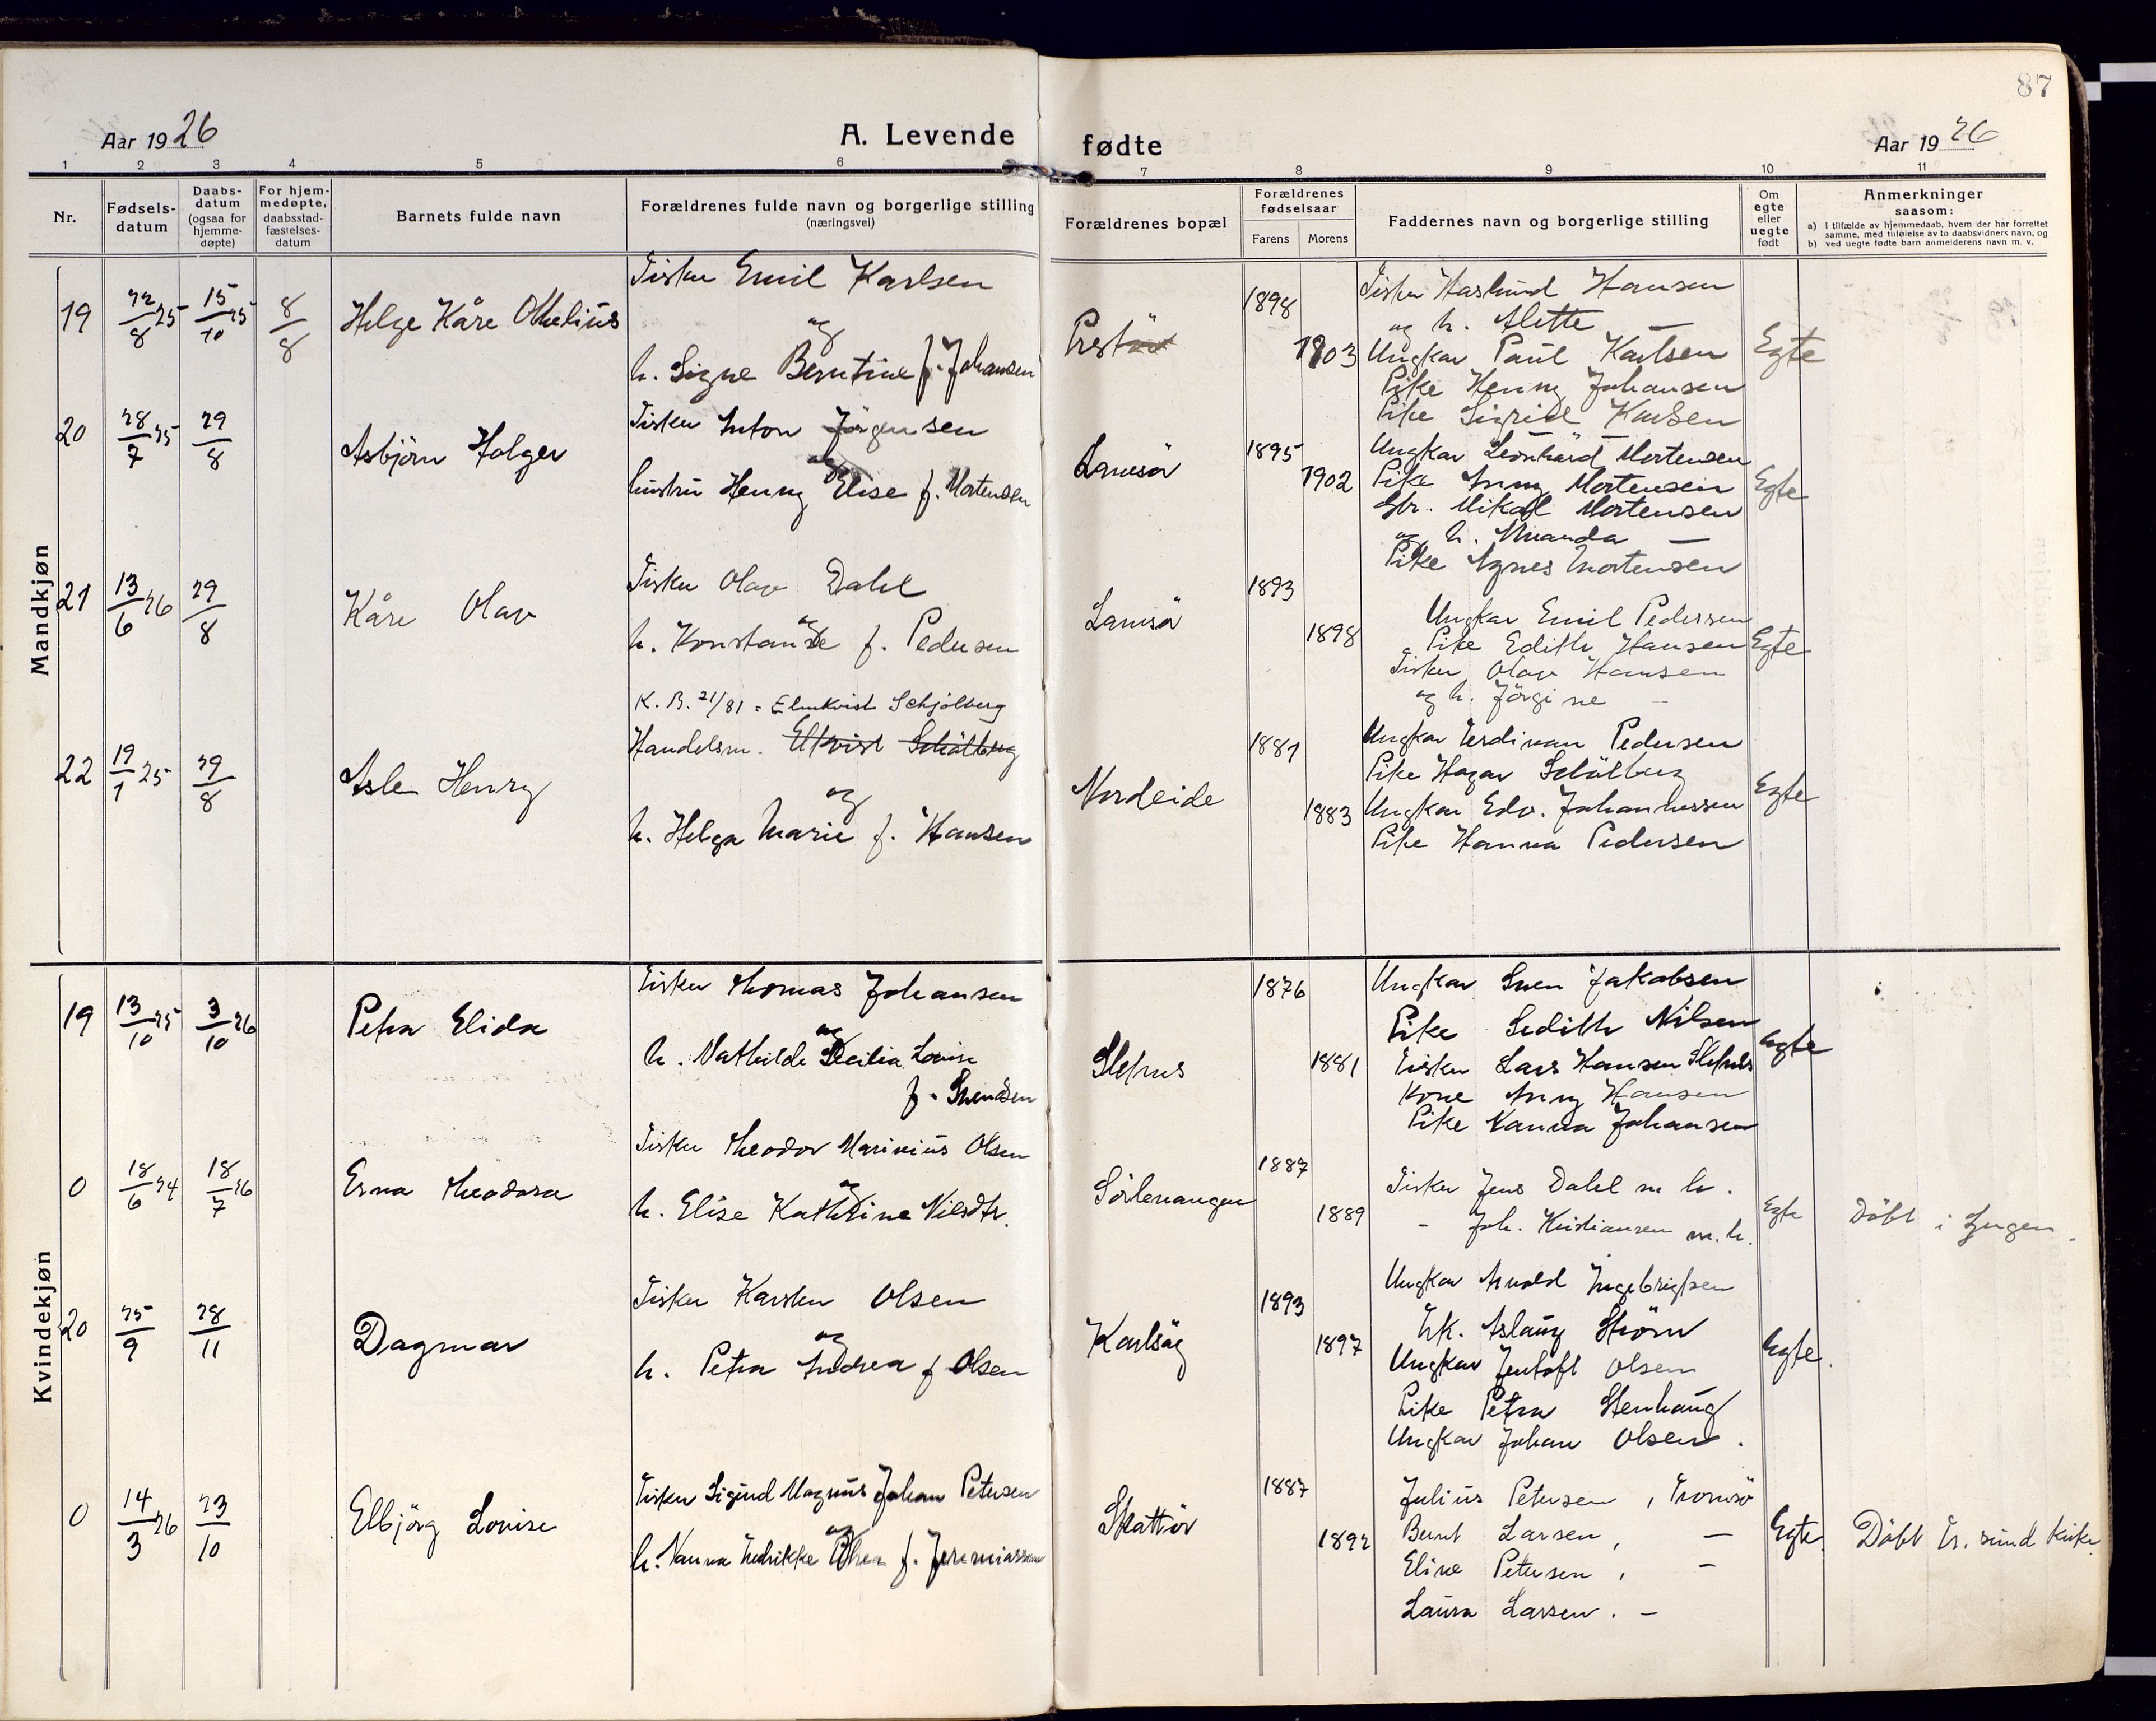 87
Aar 1926
A. Levende
fødte
Aar 1926
1 2 3 4 5 6 7 8 9 10 11
Nr.
Fødsels-
datum
Daabs-
datum
(ogsaa for
hjemme-
døpte)
For hjem-
medøpte,
daabsstad-
fæstelses-
datum
Barnets fulde navn
Forældrenes fulde navn og borgerlige stilling
(næringsvei)
Forældrenes bopæl
Forældrenes
fødselsaar
Farens Morens
Faddernes navn og borgerlige stilling
Om
egte
eller
uegte
født
Anmerkninger
saasom:
a) I tilfælde av hjemmedaab, hvem der har forrettet
samme, med tilføielse av to daabsvidners navn, og
b) ved uegte fødte barn anmelderens navn m. v.
Mandkjøn
19 22/8 25 15/10 25 8/8 Helge Kåre Othelius
Fisker Emil Karlsen
og
h. Signe Berntine f. Johansen
1898
1903
Fisker Haslund Hansen
og h. Alette —
Ungkar Paul Karlsen
Pike Henny Johansen
Pike Sigrid Karlsen
Egte
20 28/7 25 29/8 Asbjörn Holger
Fisker Anton Jörgensen
og
hustru Henny Elise f. Mortensen
Lanesör
1895
1902
Ungkar Leonhard Mortensen
Pike Anny Mortensen
Gbr. Mikal Mortensen
og h. Amanda —
Pike Agnes Mortensen
Egte
21 13/6 26 29/8 Kåre Olav
Fisker Olav Dahl
og
h. Konstanse f. Pedersen
1893
1898
Ungkar Emil Pedersen
Pike Edith Hansen
Fisker Olav Hansen
og h. Jörgine —
Egte
22 19/1 25 29/8 Asle Henry
K. B. 21/81 = Elmkvist Schjölberg
Handelsm. Elkvist Schölberg
og
h. Helga Marie f. Hansen
Nordeide
1881
1883
Ungkar Ferdinan Pedersen
Pike Hagar Schölberg
Ungkar Edv. Johannessen
Pike Hanna Pedersen
Egte
Kvindekjøn
19 13/10 25 3/10 26 Petra Elida
Fisker Thomas Johansen
og
h. Mathilde Cecilia Lovise
f. Svendsen
Sletnes
1876
1881
Ungkar Sven Jakobsen
Pike Sedith Nilsen
Fisker Lars Hansen Sletnes
Kone Anny Hansen
Pike Nanna Johansen
Egte
0 18/6 24 18/7 26 Erna Theodora
Fisker Theodor Marinius Olsen
og
h. Elise Kathrine Nilsdtr.
Sörlenangen
1887
1889
Fisker Jens Dahl m h.
– Joh. Kristiansen m. h.
Egte
Döbt i Lyngen.
20 25/9 28/11 Dagmar
Fisker Karsten Olsen
og
h. Petra Andrea f Olsen
1893
1897
Ungkar Arnold Ingebrigtsen
Frk. Aslaug Ström
Ungkar Jentoft Olsen
Pike Petra Stenhaug
Ungkar Johan Olsen.
Egte.
0 14/3 26 23/10 Elbjörg Lovise
Fisker Sigurd Magnus Johan Petersen
og
h. Nanna Fredrikke f. Jeremiassen
Skattör
1887
1892
Julius Petersen, Tromsö
Bernt Larsen, —
Eline Petersen, —
Laura Larsen. —
Egte
Döbt Tr. sund Kirke.